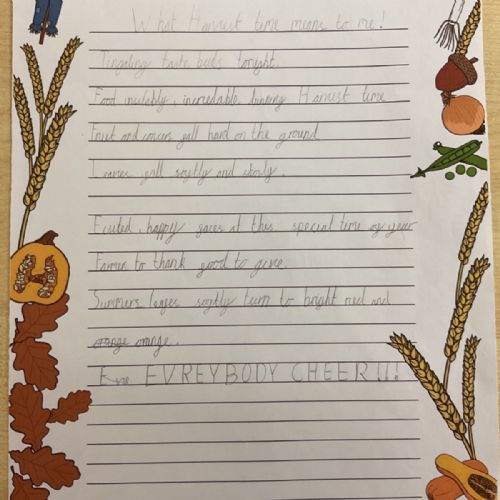 What Harvest time means to me!
Tingaling taste buds tonight.
Food incredable, Harvest time
Fruit and conкers fall hard on the ground
Leaves fall softly and slowly.
happy faces at this special time of year
Farmer to thank good to give.
Summers leafes softly turn to bright red and
orange orange.
Eve EVREYBODY CHEER!!!